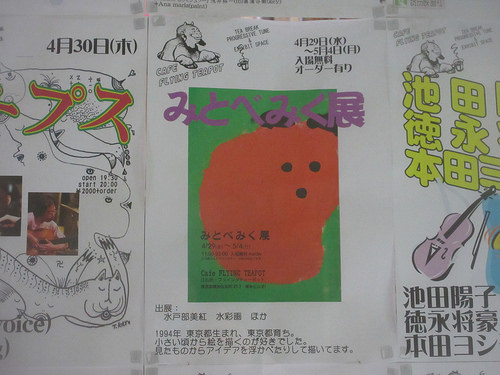 4月30日(木)
ープス
open 19:30
start 20:00
¥2000+order
卍
voice)
CAFE
FLYING TEAPOT
TEA BREAK
PROGRESSIVE TUNE &
EXHIBIT SPACE
4月29日(水)
～5月4日(月)
入場無料
オーダー有り
みとべみく展
みとべみく展
Cafe FLYING TEAPOT
出展：
水戸部美紅 水彩画 ほか
1994年 東京都生まれ、東京都育ち。
小さい頃から絵を描くのが好きでした。
見たものからアイデアを浮かべたりして描いてます。
CAFE
FLYING TEAPOT
池田
徳永
本田ヨ
池田陽子
徳永将豪
本田ヨシ